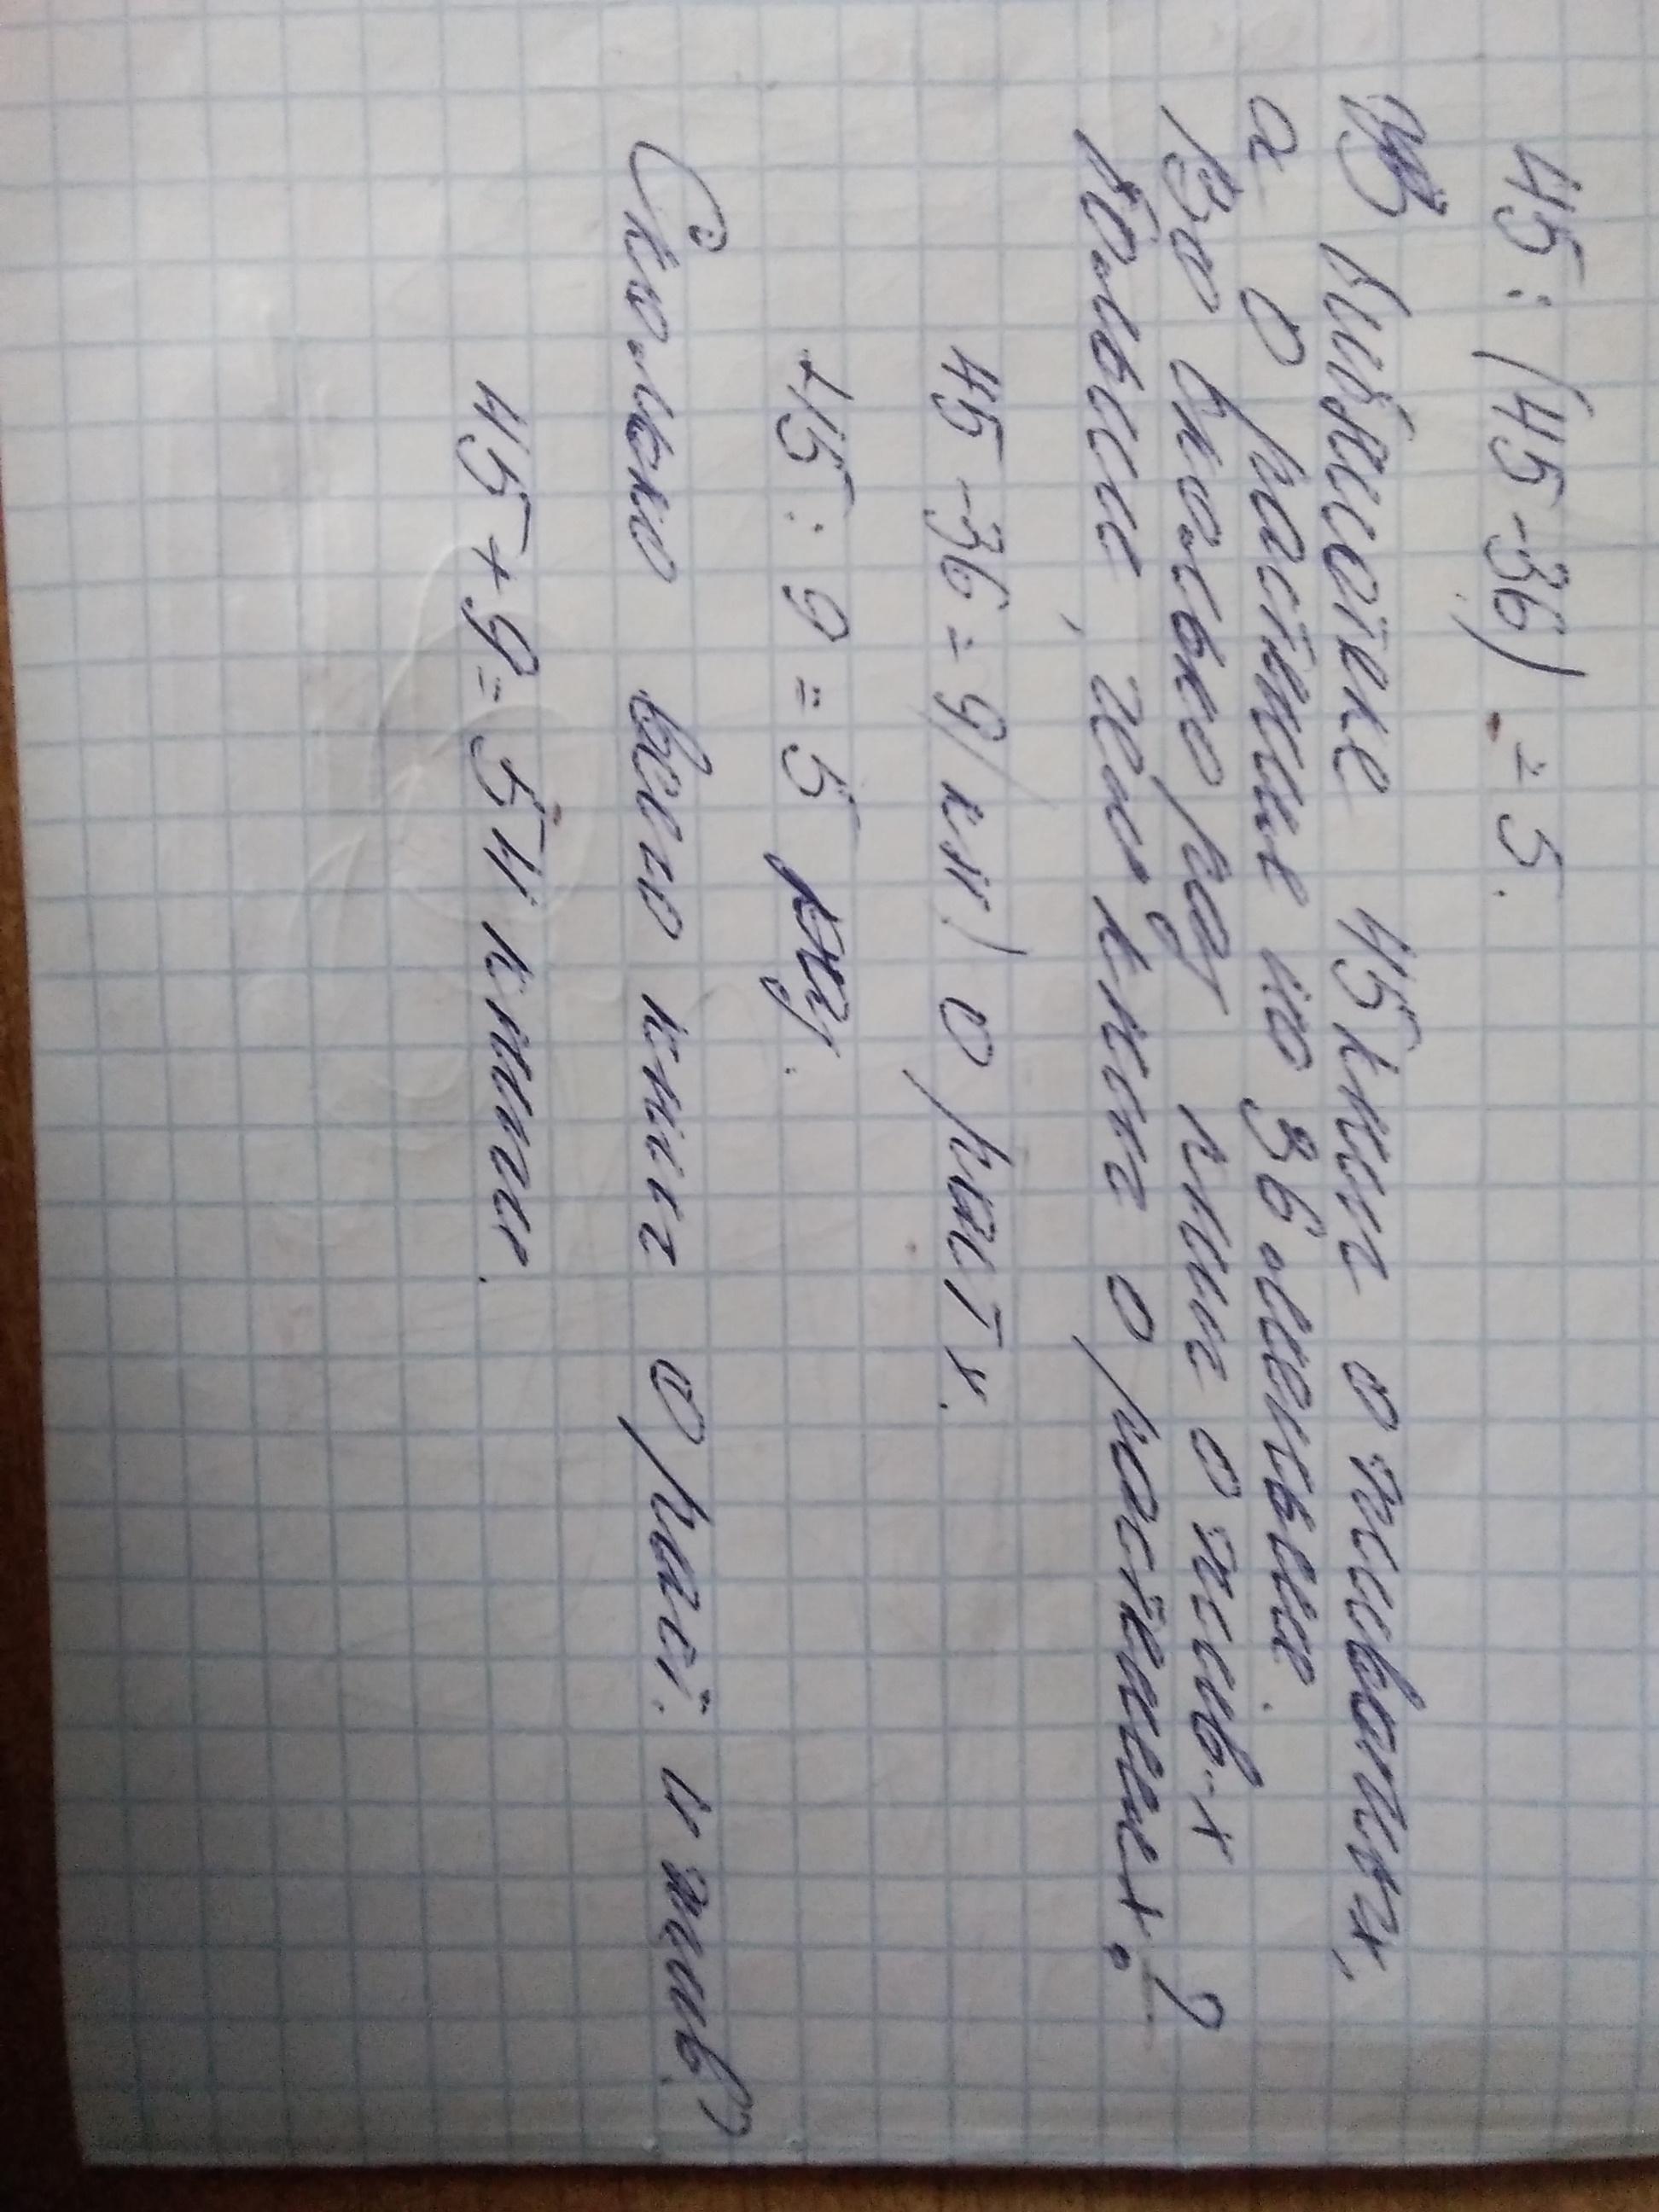 45 : (45 - 36) = 5.
В библиотеке 45 книг о животных,
а о растениях на 36 меньше.
Во сколько раз книг о жив-х
больше, чем книг о растениях?
45 - 36 = 9 (кн.) о раст-х.
45 : 9 = 5
Сколько всего книг о раст. и жив?
45 + 9 = 54 книги.